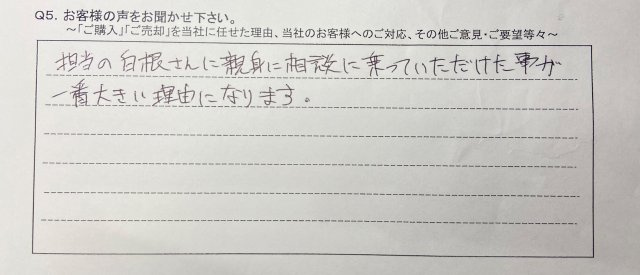 Q5. お客様の声をお聞かせ下さい。
～「ご購入」「ご売却」を当社に任せた理由、当社のお客様へのご対応、その他ご意見・ご要望等々～
担当の白根さんに親身に相談に乗っていただけた事が
一番大きい理由になります。